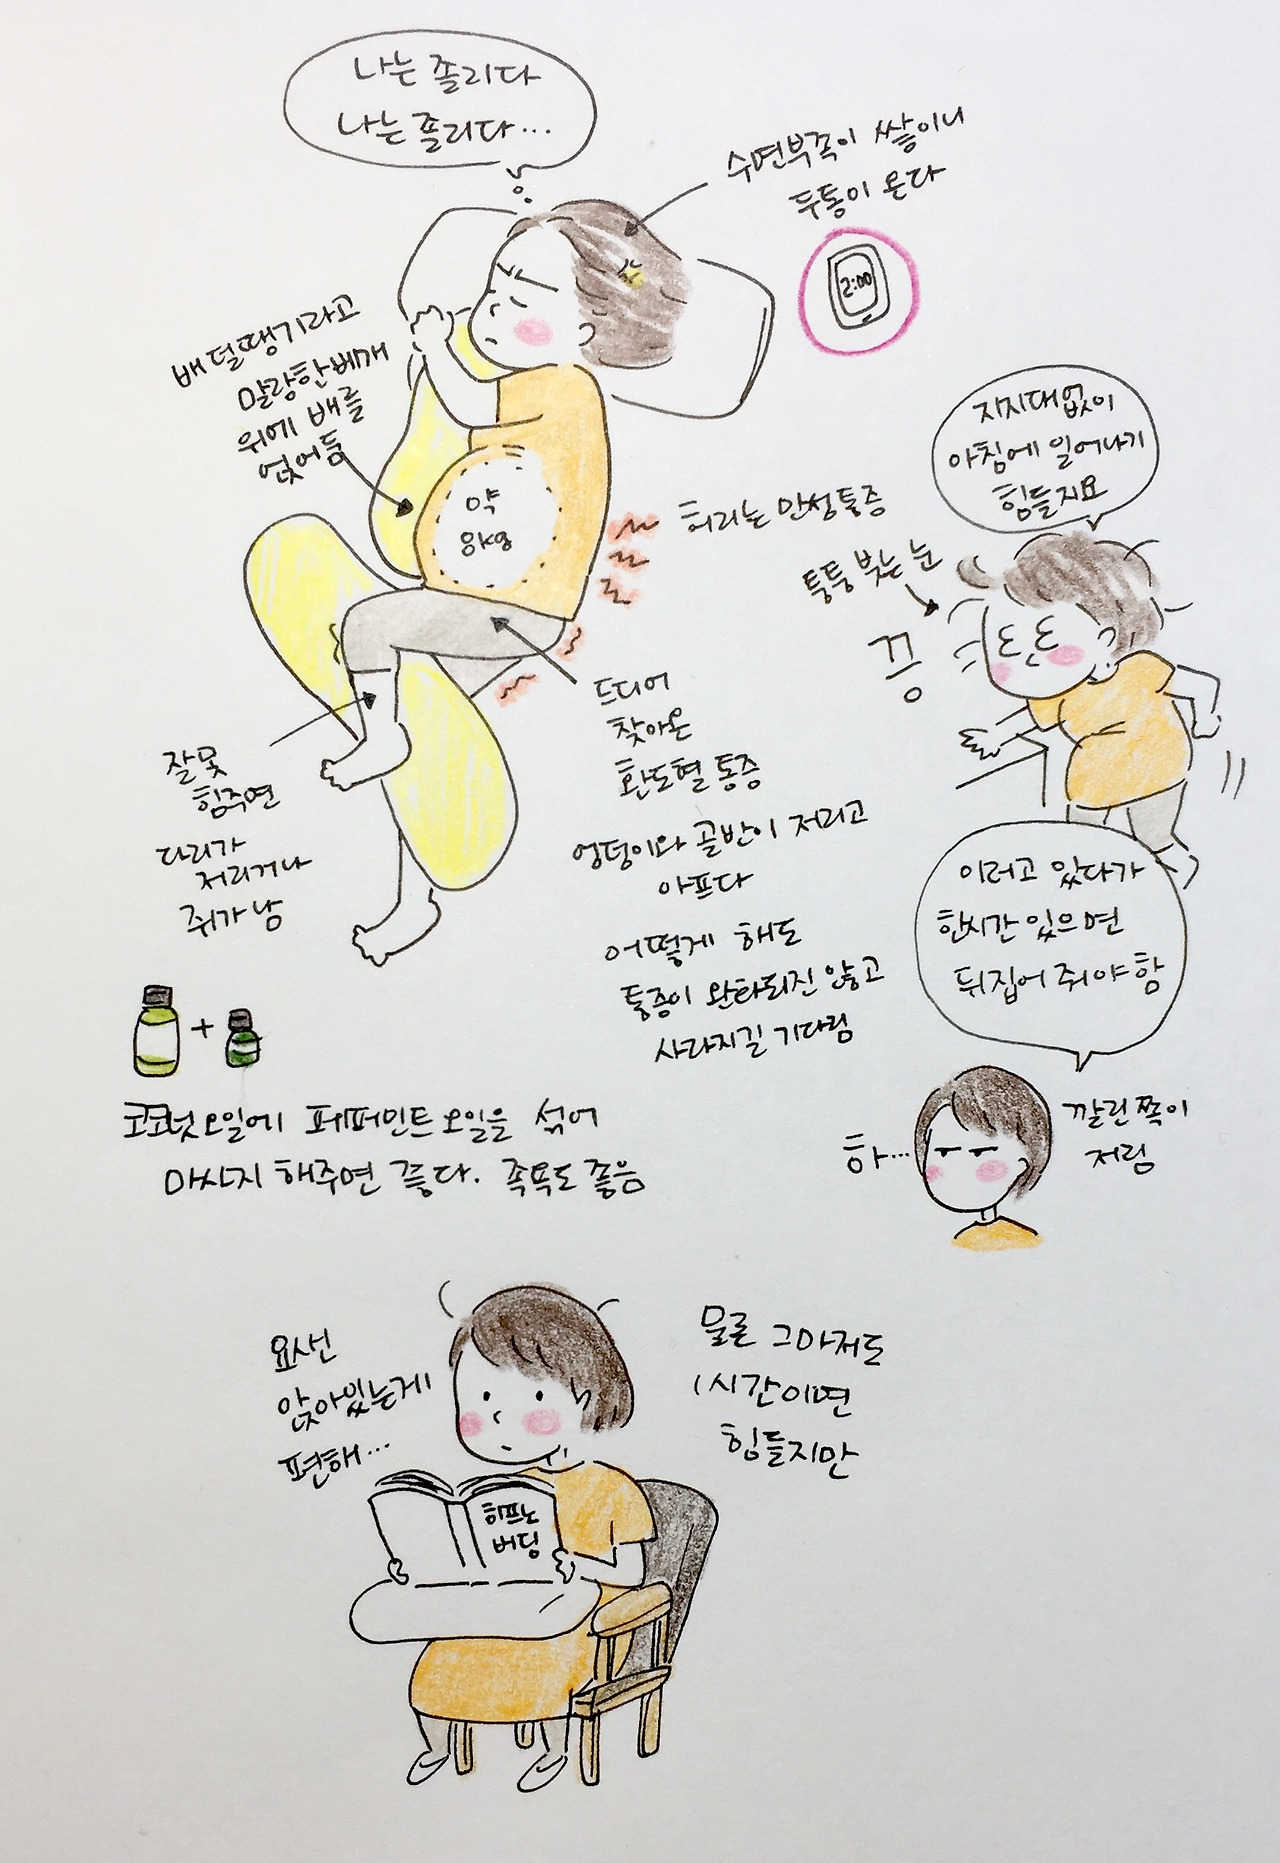 나는 졸리다
나는 졸리다...
수면부족이 쌓이니
두통이 온다
2:00
배 덜땡기라고
말랑한 베개
위에 배를
얹어둠
약
8kg
허리는 만성통증
지지대없이
아침에 일어나기
힘들지요
퉁퉁 붓는 눈
끙
드디어
찾아온
환도혈 통증
엉덩이와 골반이 저리고
아프다
어떻게 해도
통증이 완화되진 않고
사라지길 기다림
잘못
힘주면
다리가
저리거나
쥐가 남
이러고 있다가
한시간 있으면
뒤집어 줘야 함
하...
깔린 쪽이
저림
+
코코넛오일에 페퍼민트오일을 섞어
마사지 해주면 좋다. 족욕도 좋음
요샌
앉아있는게
편해...
물론 그마저도
1시간이면
힘들지만
히프노
버딩